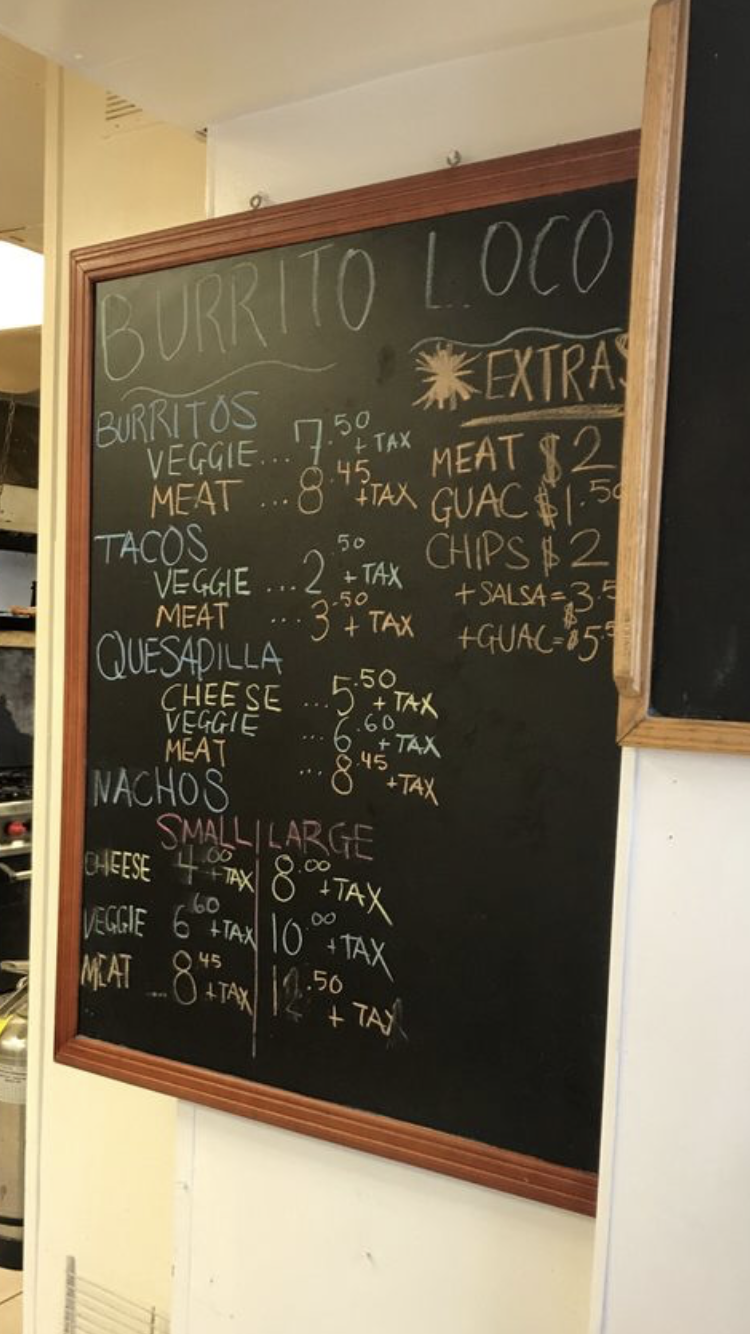 BURRITO LOCO
BURRITOS
VEGGIE... 7.50 + TAX
MEAT ... 8.45 +TAX
TACOS
VEGGIE ... 2.50 + TAX
MEAT ... 3.50 + TAX
QUESADILLA
CHEESE ... 5.50 + TAX
VEGGIE ... 6.60 + TAX
MEAT ... 8.45 +TAX
NACHOS
SMALL | LARGE
CHEESE 4.00 +TAX | 8.00 +TAX
VEGGIE 6.60 +TAX | 10.00 +TAX
MEAT ... 8.45 +TAX | 12.50 + TAX
EXTRAS
MEAT $2
GUAC $1.50
CHIPS $2
+ SALSA = $3.5
+GUAC= $5.5